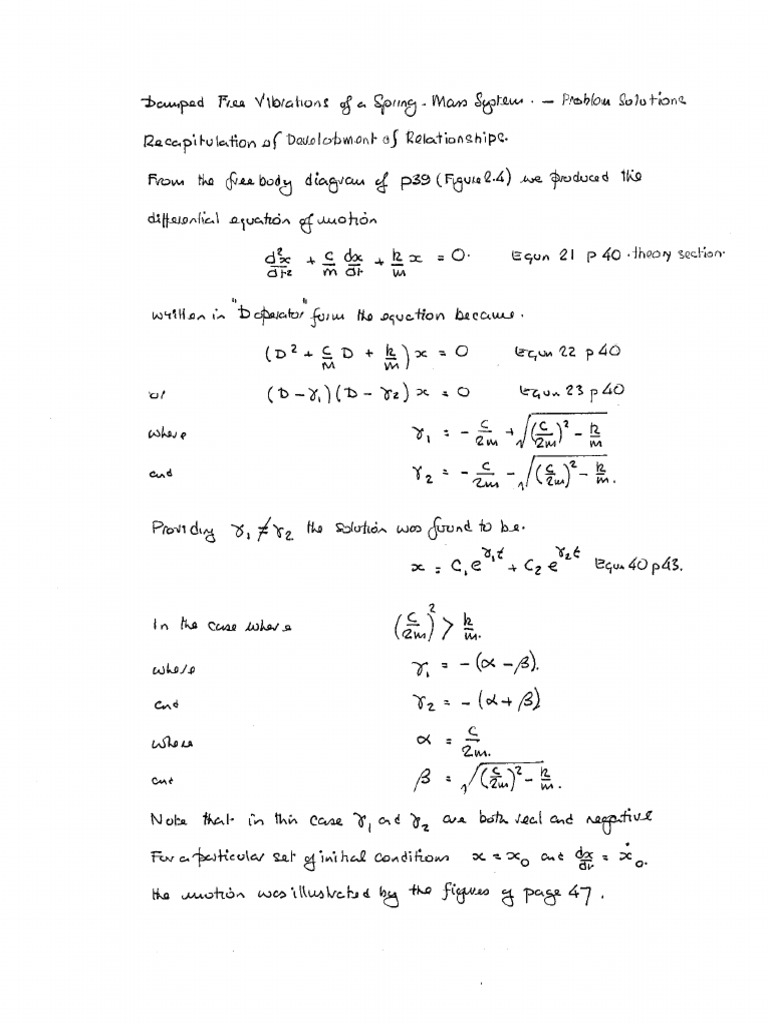 Damped Free Vibrations of a Spring-Mass System. — Problem Solutions
Recapitulation of Development of Relationships.
From the free body diagram of p39 (Figure 2.4) we produced the
differential equation of motion
d²x/dt² + c/m dx/dt + k/m x = 0. Equn 21 p 40 . theory section.
written in "D operator" form the equation became.
(D² + c/m D + k/m) x = 0 Equn 22 p 40
or (D − γ₁)(D − γ₂) x = 0 Equn 23 p 40
where γ₁ = − c/2m + √((c/2m)² − k/m)
and γ₂ = − c/2m − √((c/2m)² − k/m).
Providing γ₁ ≠ γ₂ the solution was found to be.
x = C₁e^γ₁t + C₂e^γ₂t Equn 40 p43.
In the case where (c/2m)² > k/m.
where γ₁ = −(α − β).
and γ₂ = −(α + β)
where α = c/2m.
and β = √((c/2m)² − k/m).
Note that in this case γ₁ and γ₂ are both real and negative
For a particular set of initial conditions x = x₀ and dx/dt = ẋ₀.
the motion was illustrated by the figures of page 47.